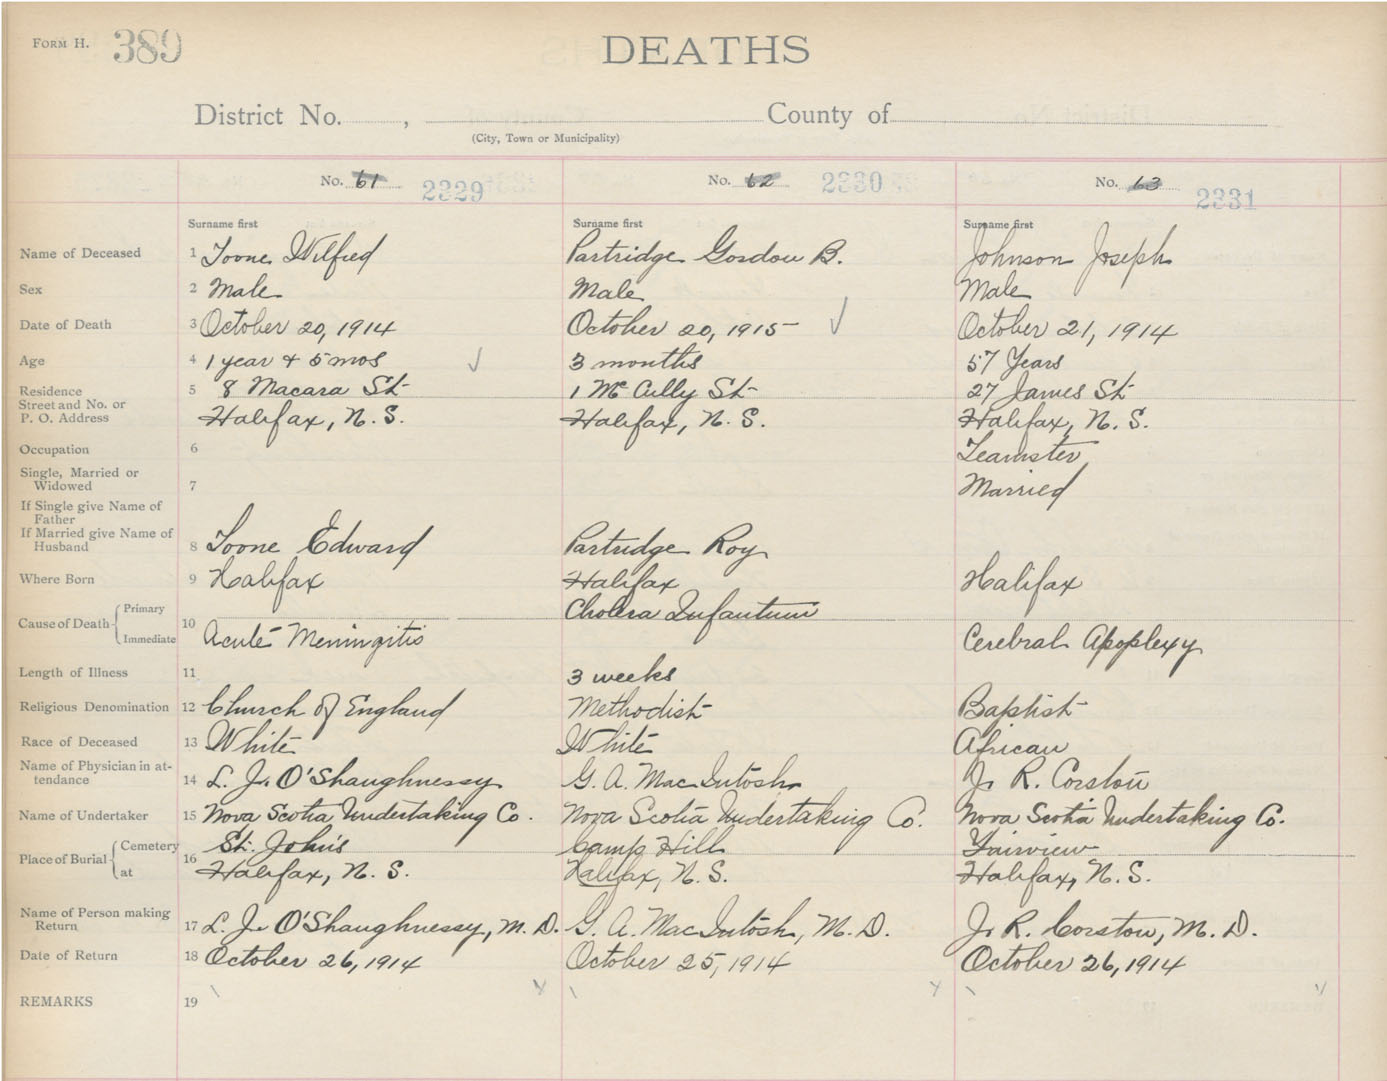 FORM H. 389
DEATHS
District No. , County of
(City, Town or Municipality)
No. 61 2329 No. 62 2330 No. 63 2331
Surname first Surname first Surname first
Name of Deceased 1 Toone Wilfred Partridge Gordon B. Johnson Joseph
Sex 2 Male Male Male
Date of Death 3 October 20, 1914 October 20, 1915 October 21, 1914
Age 4 1 year & 5 mos 3 months 57 Years
Residence 5 8 Macara St 1 McCully St 27 James St
Street and No. or
P. O. Address Halifax, N. S. Halifax, N. S. Halifax, N. S.
Occupation 6 Teamster
Single, Married or
Widowed 7 Married
If Single give Name of
Father
If Married give Name of
Husband 8 Toone Edward Partridge Roy
Where Born 9 Halifax Halifax Halifax
Cause of Death Primary 10 Cholera Infantum
Immediate Acute Meningitis Cerebral Apoplexy
Length of Illness 11 3 weeks
Religious Denomination 12 Church of England Methodist Baptist
Race of Deceased 13 White White African
Name of Physician in at-
tendance 14 L. J. O'Shaughnessy G. A. MacIntosh J. R. Corston
Name of Undertaker 15 Nova Scotia Undertaking Co. Nova Scotia Undertaking Co. Nova Scotia Undertaking Co.
Place of Burial Cemetery 16 St. John's Camp Hill Fairview
at Halifax, N. S. Halifax, N. S. Halifax, N. S.
Name of Person making
Return 17 L. J. O'Shaughnessy, M. D. G. A. MacIntosh, M. D. J. R. Corston, M. D.
Date of Return 18 October 26, 1914 October 25, 1914 October 26, 1914
REMARKS 19